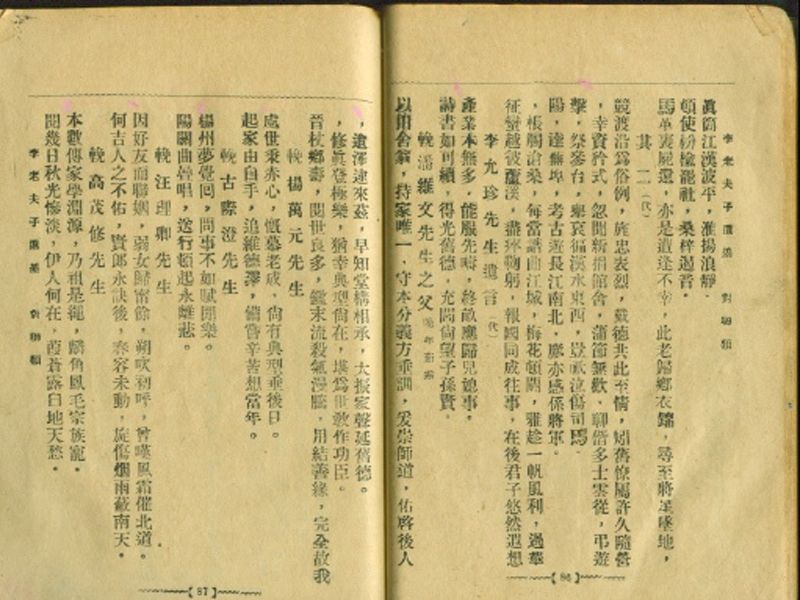 李老夫子遺墨 對聯類
眞箇江漢波平，淮揚浪靜，
頓使枌榆罷社，桑梓遏音。
馬革裹屍還，亦是遭逢不幸，此老歸鄉衣錦，尋至將星墜地，
其二（代）
競渡沿爲俗例，旌忠表烈，戴德共此至情，矧舊僚屬許久隨營
，幸資矜式，忽聞新捐館舍，蒲節無歡，聊借多士雲從，弔遊
擊，祭參台，舉哀循漢水東西，豈歌泣傷司馬。
陽，達
，考古遊長江南北，
亦感係將軍。
，帳觸滄桑，每當譜曲江城，梅花頓開，雅趁一帆風利，過華
征蠻越被
，盡瘁鞠躬，報國同成往事，在後君子悠然遐想
李允珍先生遺言（代）
產業本無多，能服先疇，終畝應歸兄嫂事。
詩書如可續，得光舊德，充閭尙望子孫賢。
輓潘維文先生之父
以用舍
，持家唯一，守本分義方垂訓，爰崇師道，佑啓後人
【86】
，遺澤逮來茲，早知堂構相承，大振家聲延舊德。
，修眞登極樂，猶幸典型尙在，堪爲世敎作功臣。
晉杖鄉壽，閱世良多，鑑末流殺氣漫騰，用結善緣，完全故我
輓楊萬元先生
處世秉赤心，慨慕老成，尙有典型垂後日。
起家由白手，追維德澤，備嘗辛苦想當年。
輓古際澄先生
楊州夢覺回，問事不如賦閒樂。
陽關曲疊唱，送行頓起永離悲。
輓汪理卿先生
因好友而聯姻，弱女歸甯餘，朔吹初呼，曾嘆風霜催北道。
何吉人之不佑，賢郎永訣後，春容未動，旋傷烟雨蔽南天。
輓高茂修先生
本數傳家學淵源，乃祖是繩，麟角鳳毛宗族寵。
閱幾日秋光慘淡，伊人何在，葭蒼露白地天愁。
李老夫子遺墨 對聯類
【87】